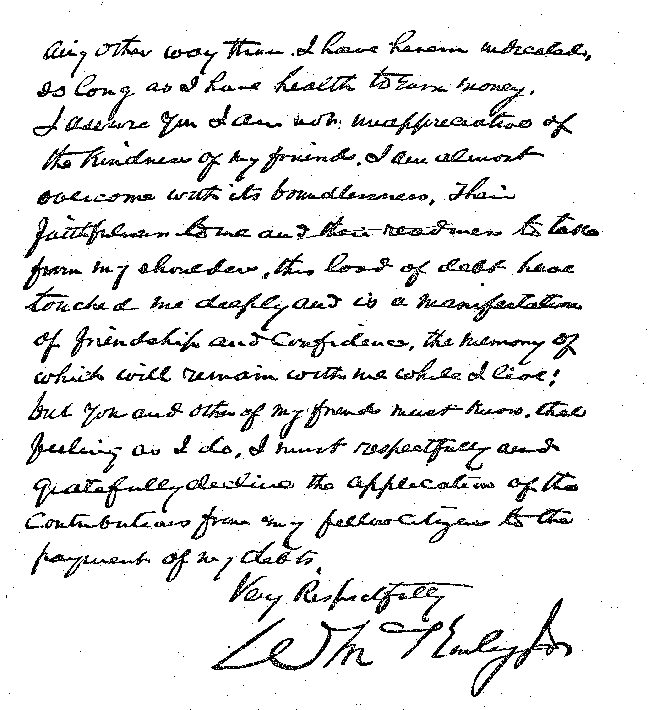 any other way than I have herein indicated,
so long as I have health to earn money.
I assure you I am not unappreciative of
the kindness of my friends. I am almost
overcome with its boundlessness, Their
faithfulness to me and their readiness to take
from my shoulders, this load of debt have
touched me deeply and is a manifestation
of friendship and confidence, the memory of
which will remain with me while I live;
but you and other of my friends must know, that
feeling as I do, I must respectfully and
gratefully decline the application of the
contributions from my fellow citizens to the
payment of my debts.
Very Respectfully
Wm McKinley Jr